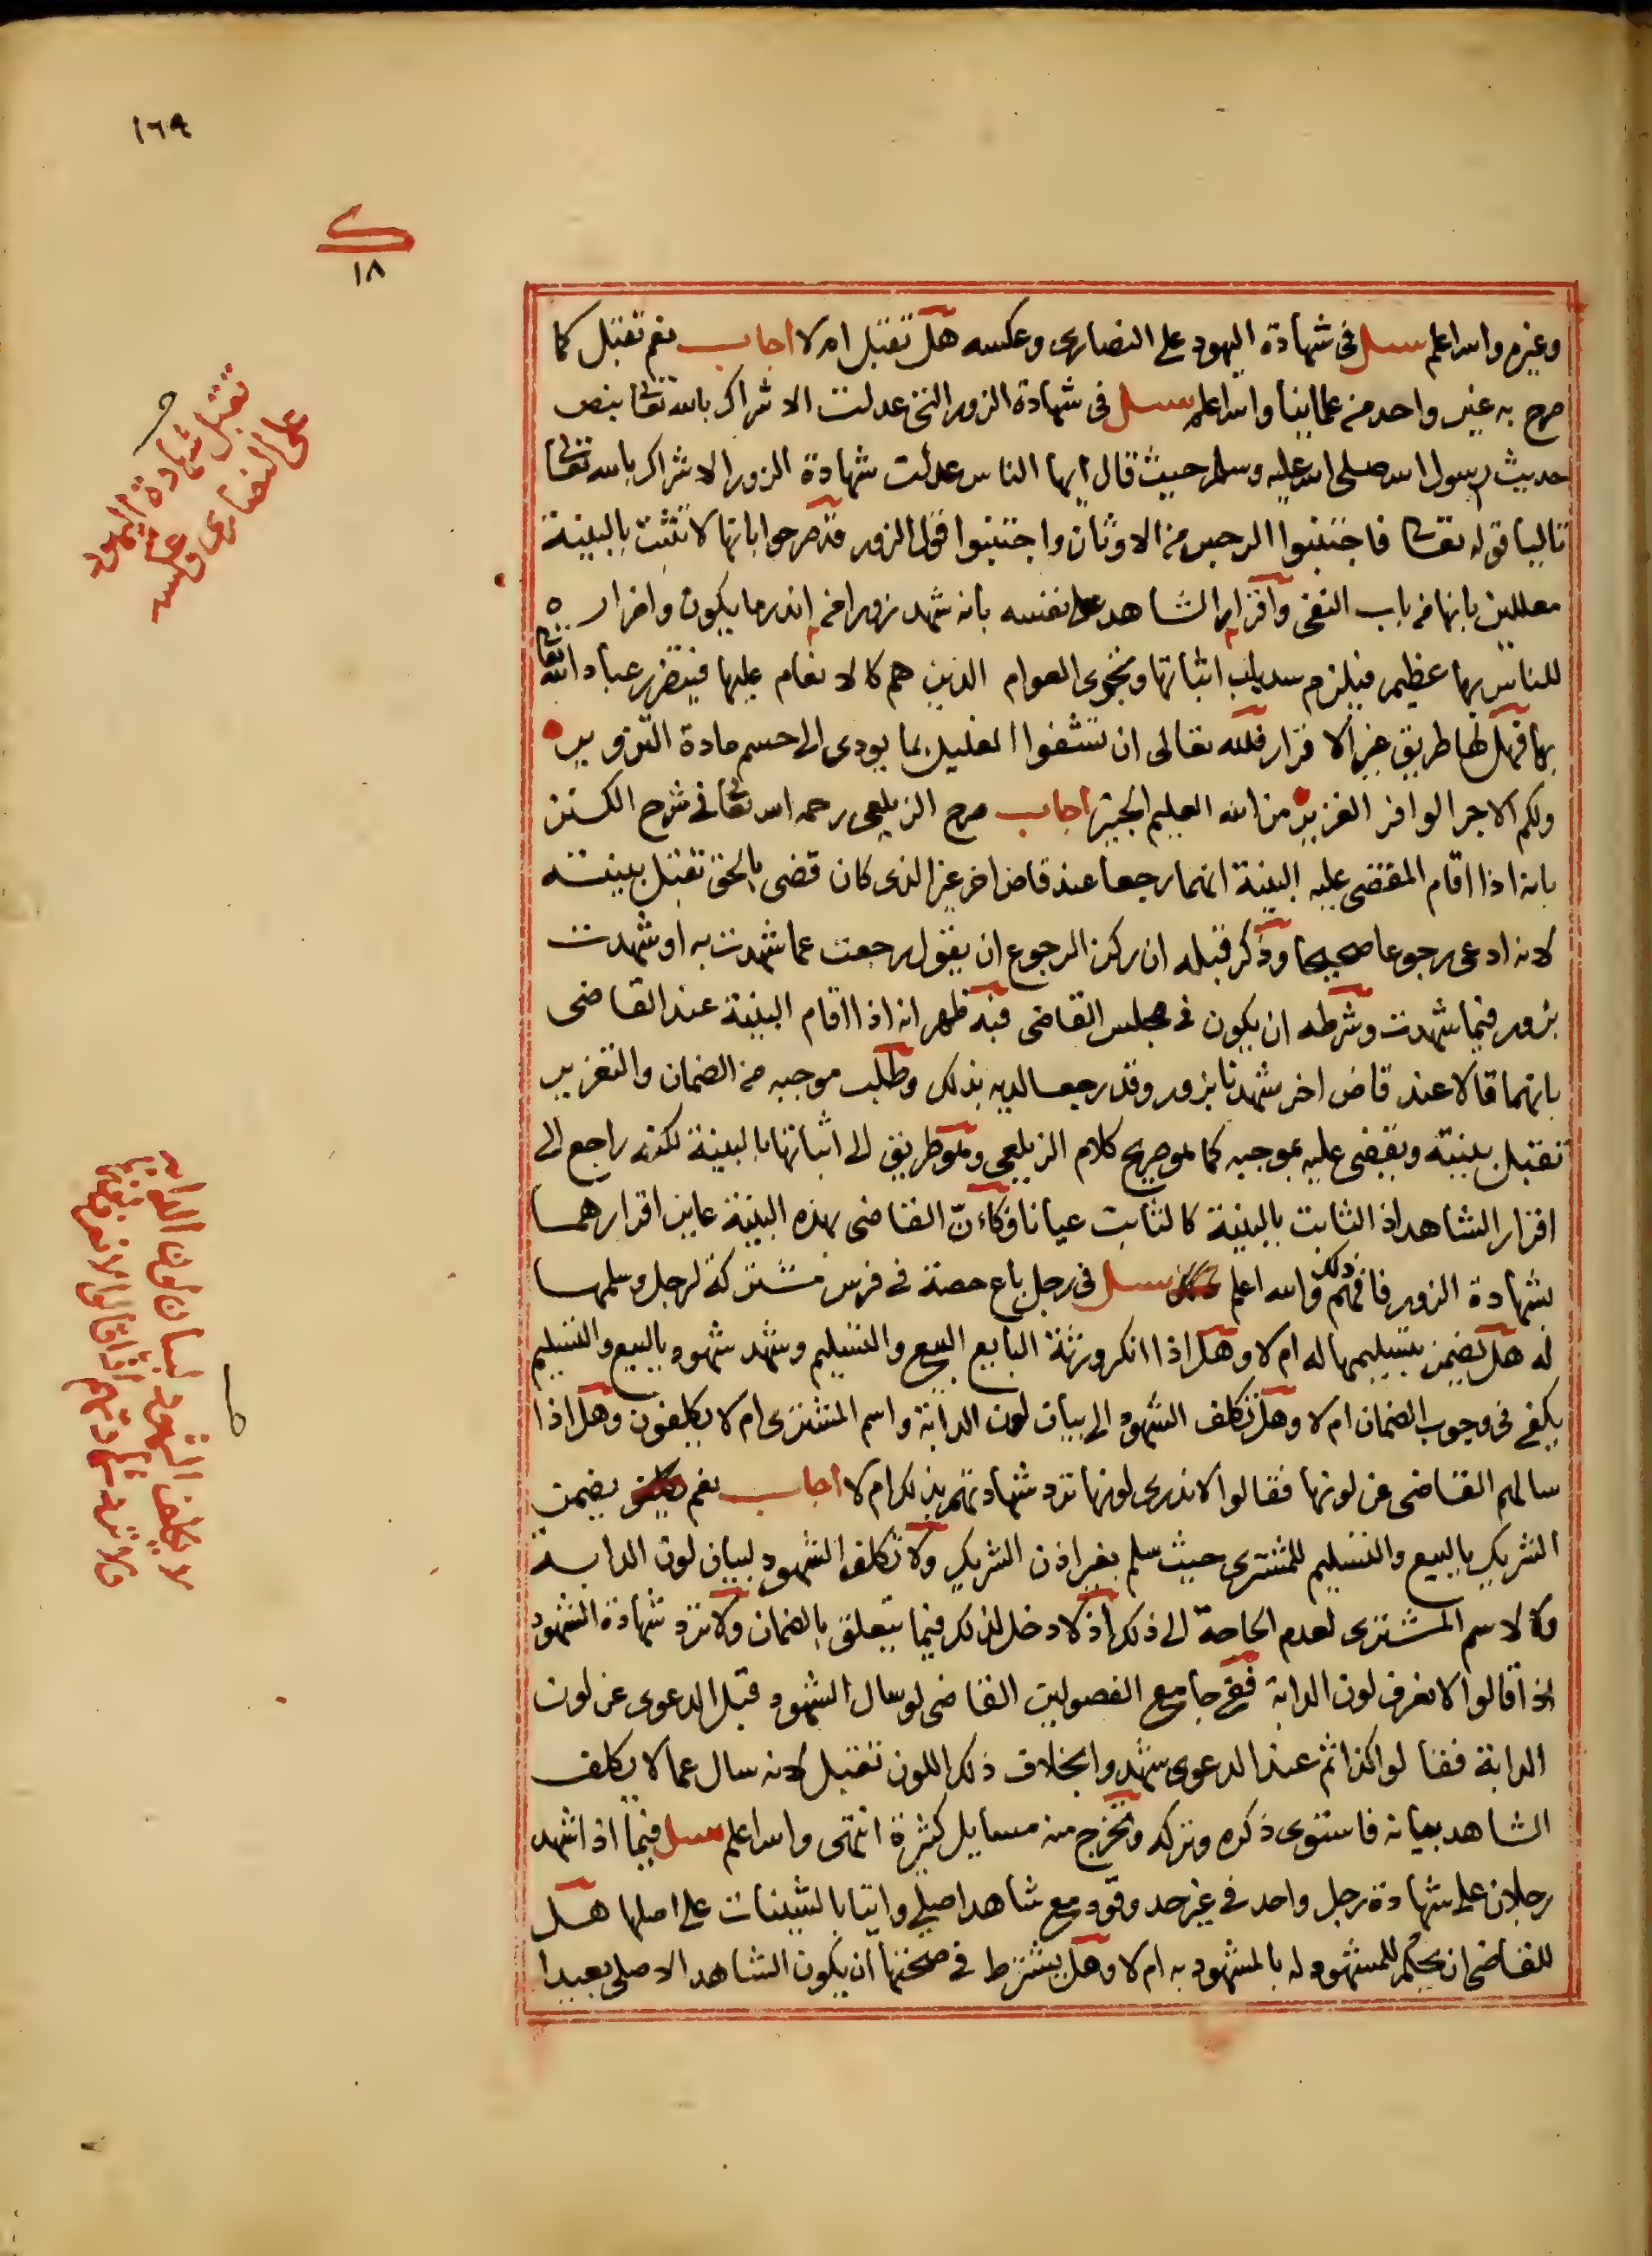 ١٦٩
ك
١٨
وغيره والله اعلم سئل فى شهادة اليهود على النصارى وعكسه هل تقبل ام لا اجاب نعم تقبل كما
صرح به غير واحد من علمائنا والله اعلم سئل فى شهادة الزور التى عدلت الاشراك بالله تعالى بنص
حديث رسول الله صلى الله عليه وسلم حيث قال ايها الناس عدلت شهادة الزور الاشراك بالله تعالى
تاليا قوله تعالى فاجتنبوا الرجس من الاوثان واجتنبوا قول الزور قد صرحوا بانها لا تثبت بالبينة
معللين بانها من باب النفى واقرار الشاهد على نفسه بانه شهد زورا من اندر ما يكون واضرار
للناس بها عظيم فيلزم سد باب اثباتها وتجرى العوام الذين هم كالانعام عليها فيتضرر عباد الله تعالى
بها فهل لها طريق غير الاقرار فلله تعالى ان تشفوا الغليل بما يودى الى حسم مادة التزوير
ولكم الاجر الوافر الغزير من الله العليم الخبير اجاب صرح الزيلعى رحمه الله تعالى فى شرح الكنز
بانه اذا اقام المقضى عليه البينة انهما رجعا عند قاض اخر غير الذى كان قضى بالحق تقبل بينته
لانه ادعى رجوعا صحيحا وذكر قبله ان ركن الرجوع ان يقول رجعت عما شهدت به او شهدت
بزور فيما شهدت وشرطه ان يكون فى مجلس القاضى فبه ظهر انه اذا اقام البينة عند القاضى
بانهما قالا عند قاض اخر شهدنا بزور وقد رجعا لديه بذلك وطلب موجبه من الضمان والتعزير
تقبل بينته ويقضى عليه بموجبه كما هو صريح كلام الزيلعى وهو طريق الى اثباتها بالبينة لكنه راجع الى
اقرار الشاهد اذ الثابت بالبينة كالثابت عيانا فكانّ القاضى بهذه البينة عاين اقرارهما
بشهادة الزور فافهم ذلك والله اعلم سئل فى رجل باع حصة فى فرس مشتركة لرجل وسلمها
له هل يضمن بتسليمها له ام لا وهل اذا انكر ورثة البايع البيع والتسليم وشهد شهود بالبيع والتسليم
يكفى فى وجوب الضمان ام لا وهل تكلف الشهود الى بيان لون الدابة واسم المشترى ام لا يكلفون وهل اذا
سالهم القاضى عن لونها فقالوا لا ندرى لونها ترد شهادتهم بذلك ام لا اجاب نعم يضمن
الشريك بالبيع والتسليم للمشترى حيث سلم بغير اذن الشريك ولا تكلف الشهود لبيان لون الدابة
ولا لاسم المشترى لعدم الحاجة الى ذلك اذ لا دخل لذلك فيما يتعلق بالضمان ولا ترد شهادة الشهود
اذا قالوا لا نعرف لون الدابة ففى جامع الفصولين القاضى لو سال الشهود قبل الدعوى عن لون
الدابة فقالوا كذا ثم عند الدعوى شهدوا بخلاف ذلك اللون تقبل لانه سال عما لا يكلف
الشاهد بيانه فاستوى ذكره وتركه وتخرج منه مسايل كثيرة انتهى والله اعلم سئل فيما اذا شهد
رجلان على شهادة رجل واحد فى غير حد وقود مع شاهد اصلى واتيا بالشينات على اصلها هل
للقاضى ان يحكم للمشهود له بالمشهود به ام لا وهل يشترط فى صحتها ان يكون الشاهد الاصلى بعيدا
تقبل شهادة اليهود
على النصارى وعكسه
لا يكلف الشهود لبيان لون الدابة